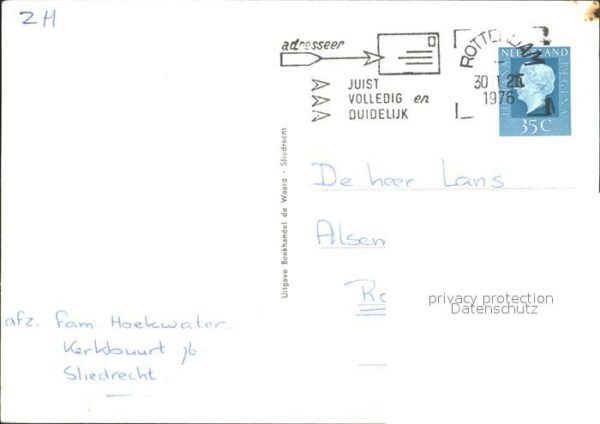 ZH
adresseer
JUIST
VOLLEDIG en
DUIDELIJK
ROTTERDAM
30
1976
NEDERLAND
35 C
Uitgave Boekhandel de Waard - Sliedrecht
De heer Lans
Alsem
Ro
privacy protection
Datenschutz
afz. Fam. Hoekwater.
Kerkbuurt
Sliedrecht.